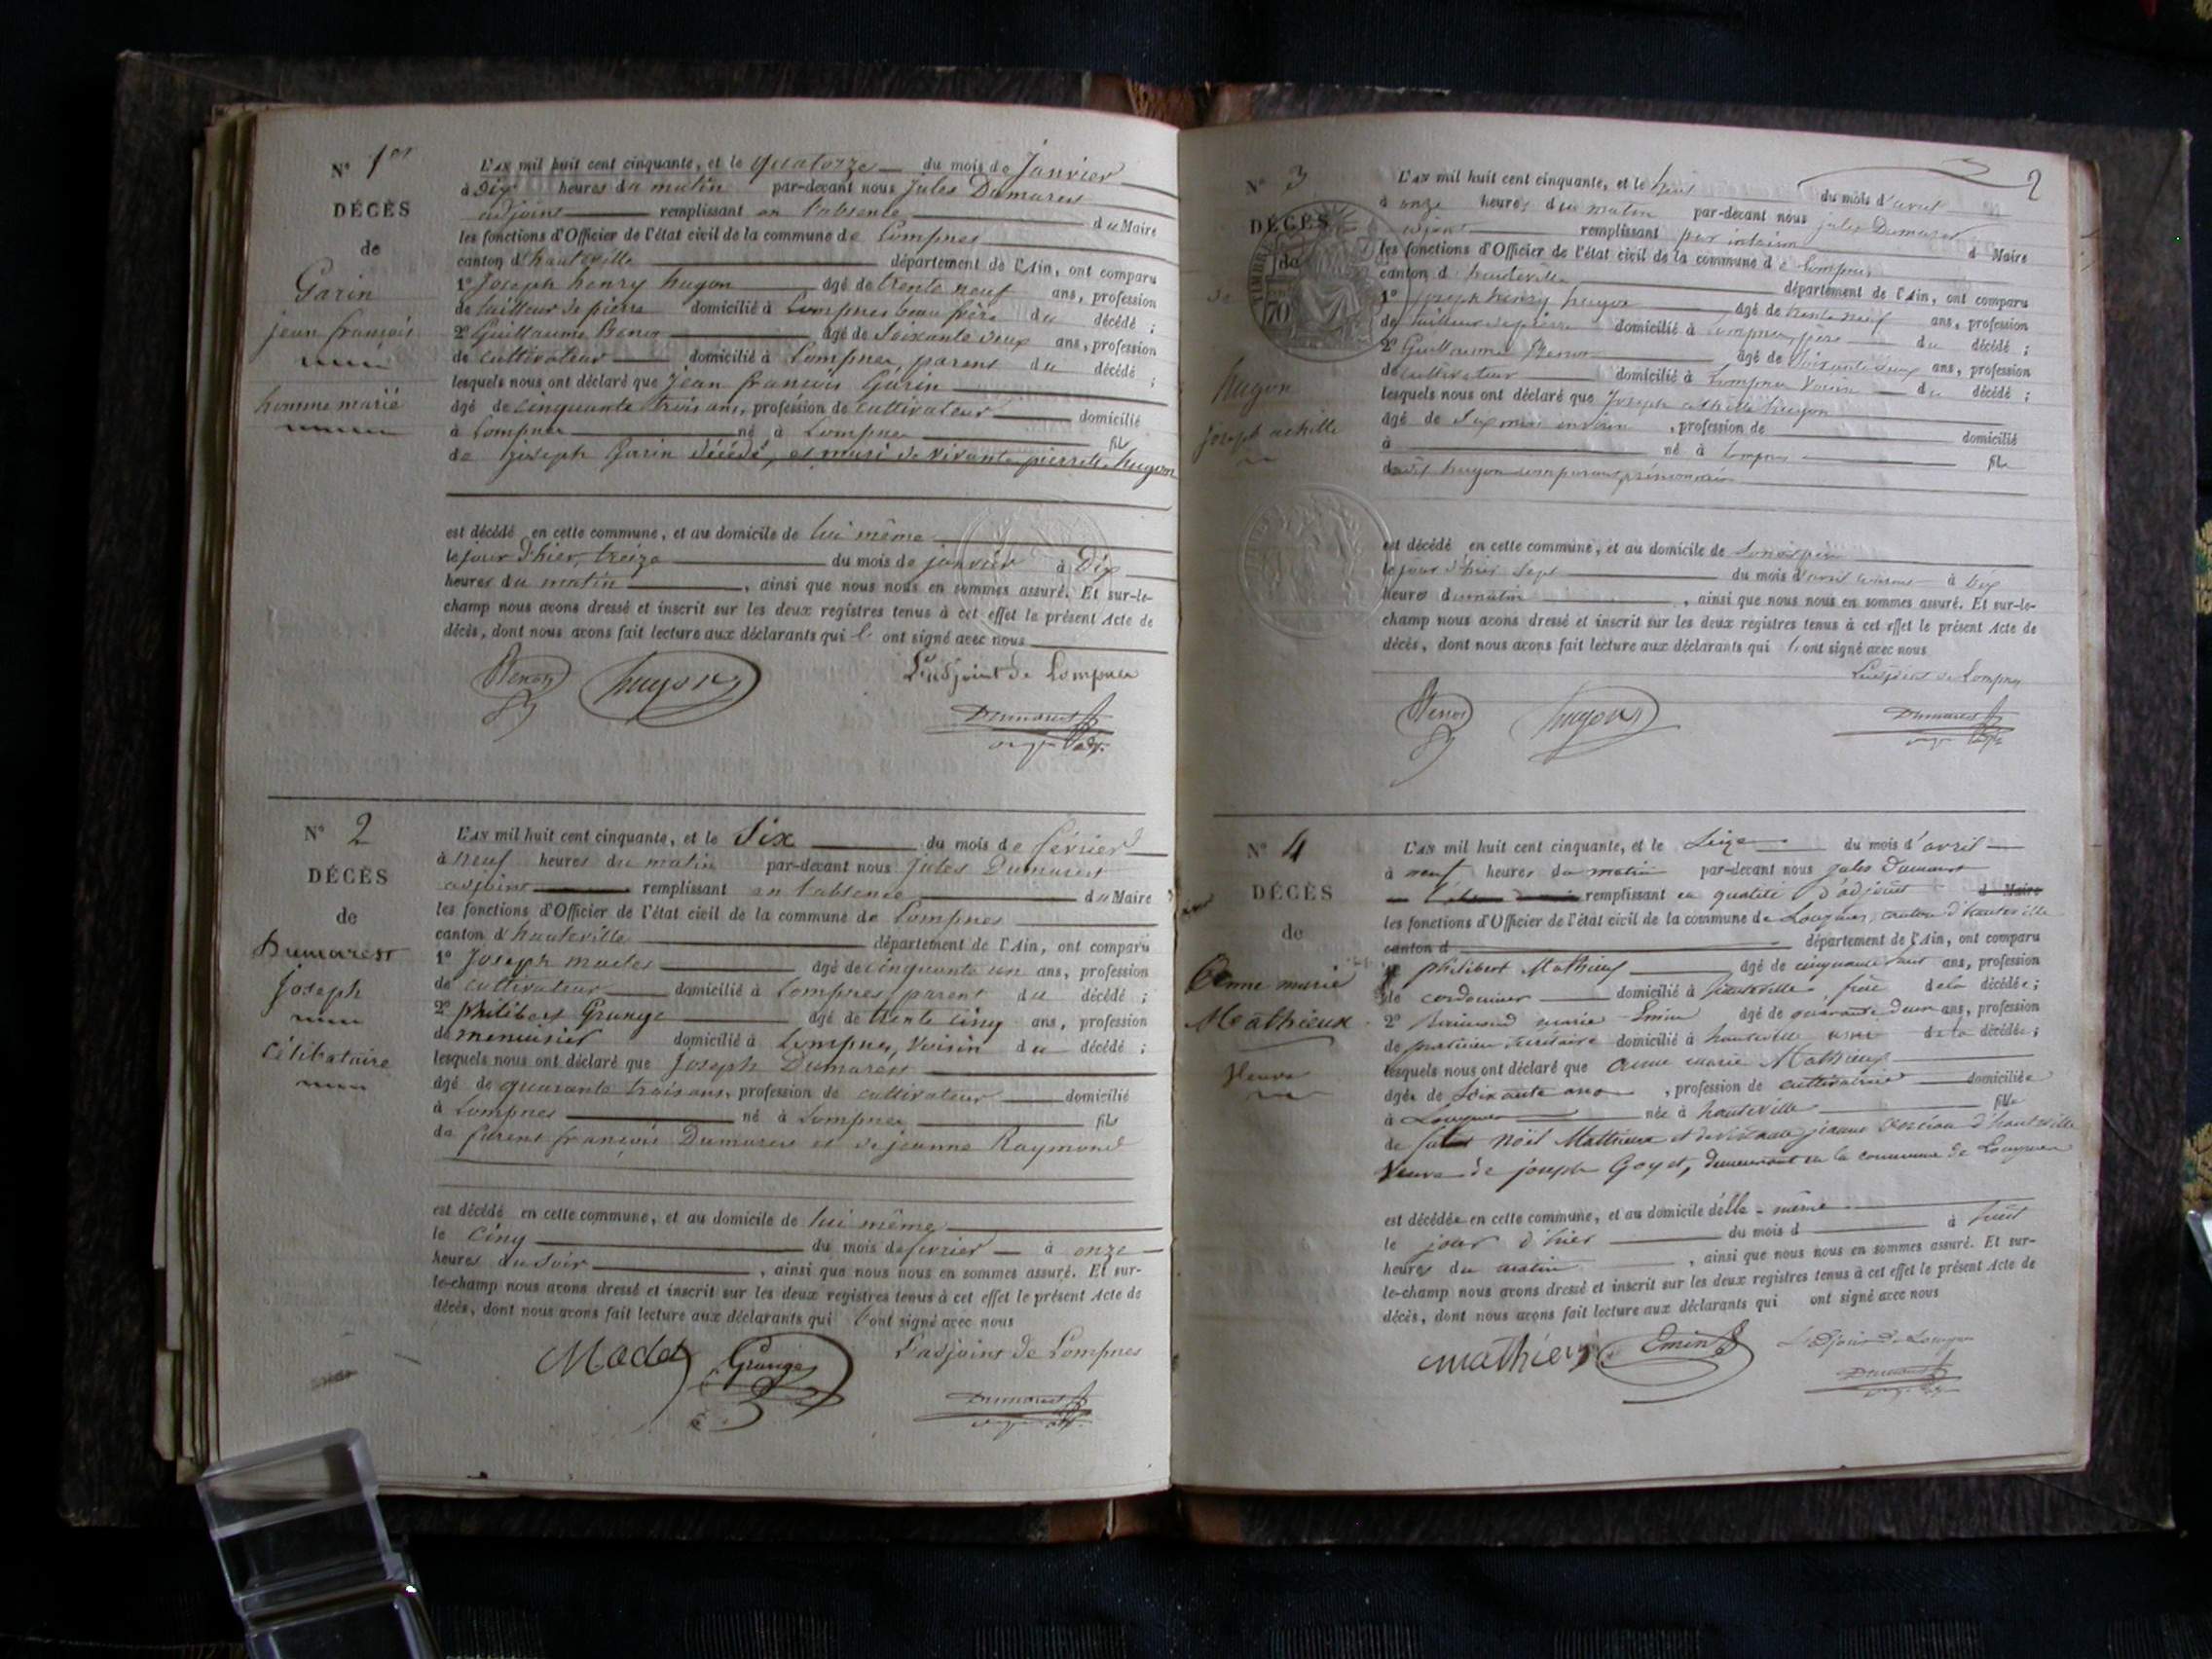 N° 1er
DÉCÈS
de
Garin
jean françois
homme marié
L'AN mil huit cent cinquante, et le quatorze du mois de Janvier
à dix heures du matin par-devant nous Jules Dumarest
adjoint remplissant en l'absence du Maire
les fonctions d'Officier de l'état civil de la commune de Lompnes
canton d'hauteville département de l'Ain, ont comparu
1° Joseph henry hugon âgé de trente neuf ans, profession
de tailleur de pierre domicilié à Lompnes beau frère du décédé ;
2° Guillaume Benoi âgé de Soixante deux ans, profession
de cultivateur domicilié à Lompnes, parent du décédé ;
lesquels nous ont déclaré que Jean françois Garin
âgé de cinquante trois ans, profession de cultivateur domicilié
à Lompnes né à Lompnes fils
de Joseph Garin décédé, et mari de vivante pierrette hugon
est décédé en cette commune, et au domicile de lui même
le jour d'hier, treize du mois de janvier à Dix
heures du matin, ainsi que nous nous en sommes assuré. Et sur-le-
champ nous avons dressé et inscrit sur les deux registres tenus à cet effet le présent Acte de
décès, dont nous avons fait lecture aux déclarants qui l' ont signé avec nous
L'adjoint de Lompnes
Benoi hugon
Dumarest
N° 2
DÉCÈS
de
Dumarest
joseph
Célibataire
L'AN mil huit cent cinquante, et le Six du mois de février
à neuf heures du matin par-devant nous Jules Dumarest
adjoint remplissant en l'absence du Maire
les fonctions d'Officier de l'état civil de la commune de Lompnes
canton d'hauteville département de l'Ain, ont comparu
1° Joseph âgé de cinquante un ans, profession
de cultivateur domicilié à Lompnes, parent du décédé ;
2° philibert Grange âgé de trente cinq ans, profession
de menuisier domicilié à Lompnes, voisin du décédé ;
lesquels nous ont déclaré que Joseph Dumarest
âgé de quarante trois ans, profession de cultivateur domicilié
à Lompnes né à Lompnes fils
de furent françois Dumarest et de jeanne Raymond
est décédé en cette commune, et au domicile de lui même
le cinq du mois de fevrier à onze
heures du soir, ainsi que nous nous en sommes assuré. Et sur-
le-champ nous avons dressé et inscrit sur les deux registres tenus à cet effet le présent Acte de
décès, dont nous avons fait lecture aux déclarants qui l'ont signé avec nous
L'adjoint de Lompnes
Grange
Dumarest
2
N° 3
DÉCÈS
de
hugon
joseph achille
TIMBRE
70
L'AN mil huit cent cinquante, et le huit du mois d'avril
à onze heures du matin par-devant nous jules Dumarest
adjoint remplissant par interim d Maire
les fonctions d'Officier de l'état civil de la commune de Lompnes
canton d hauteville département de l'Ain, ont comparu
1° joseph henry hugon âgé de trente neuf ans, profession
de tailleur de pierre domicilié à Lompnes, père du décédé ;
2° Guillaume Benoi âgé de Soixante deux ans, profession
de cultivateur domicilié à Lompnes voisin du décédé ;
lesquels nous ont déclaré que Joseph achille hugon
âgé de Six mois environ, profession de domicilié
à né à Lompnes fils
dudit hugon comparant, prénommé
est décédé en cette commune, et au domicile de son père
le jour d'hier sept du mois d'avril à dix
heures du matin, ainsi que nous nous en sommes assuré. Et sur-le-
champ nous avons dressé et inscrit sur les deux registres tenus à cet effet le présent Acte de
décès, dont nous avons fait lecture aux déclarants qui l'ont signé avec nous
L'adjoint de Lompnes
Benoi hugon
Dumarest
N° 4
DÉCÈS
de
Anne marie
Mathieux
Veuve
L'AN mil huit cent cinquante, et le Seize du mois d'avril
à neuf heures du matin par-devant nous jules Dumarest
remplissant en qualité d'adjoint d Maire
les fonctions d'Officier de l'état civil de la commune de Lompnes, canton d'hauteville
canton d département de l'Ain, ont comparu
1° philibert Mathieux âgé de cinquante huit ans, profession
de cordonnier domicilié à hauteville, frère de la décédée ;
2° marie Emin âgé de quarante deux ans, profession
de domicilié à hauteville de la décédée ;
lesquels nous ont déclaré que Anne marie Mathieux
âgée de Soixante ans, profession de cultivatrice domiciliée
à Lompnes née à hauteville fille
de Noël Mathieux et de jeanne d'hauteville
Veuve de joseph Goyet, demeurant en la commune de Lompnes
est décédée en cette commune, et au domicile d'elle-même
le jour d'hier du mois d à huit
heures du matin, ainsi que nous nous en sommes assuré. Et sur-
le-champ nous avons dressé et inscrit sur les deux registres tenus à cet effet le présent Acte de
décès, dont nous avons fait lecture aux déclarants qui ont signé avec nous
mathieux Emin L'adjoint de Lompnes
Dumarest